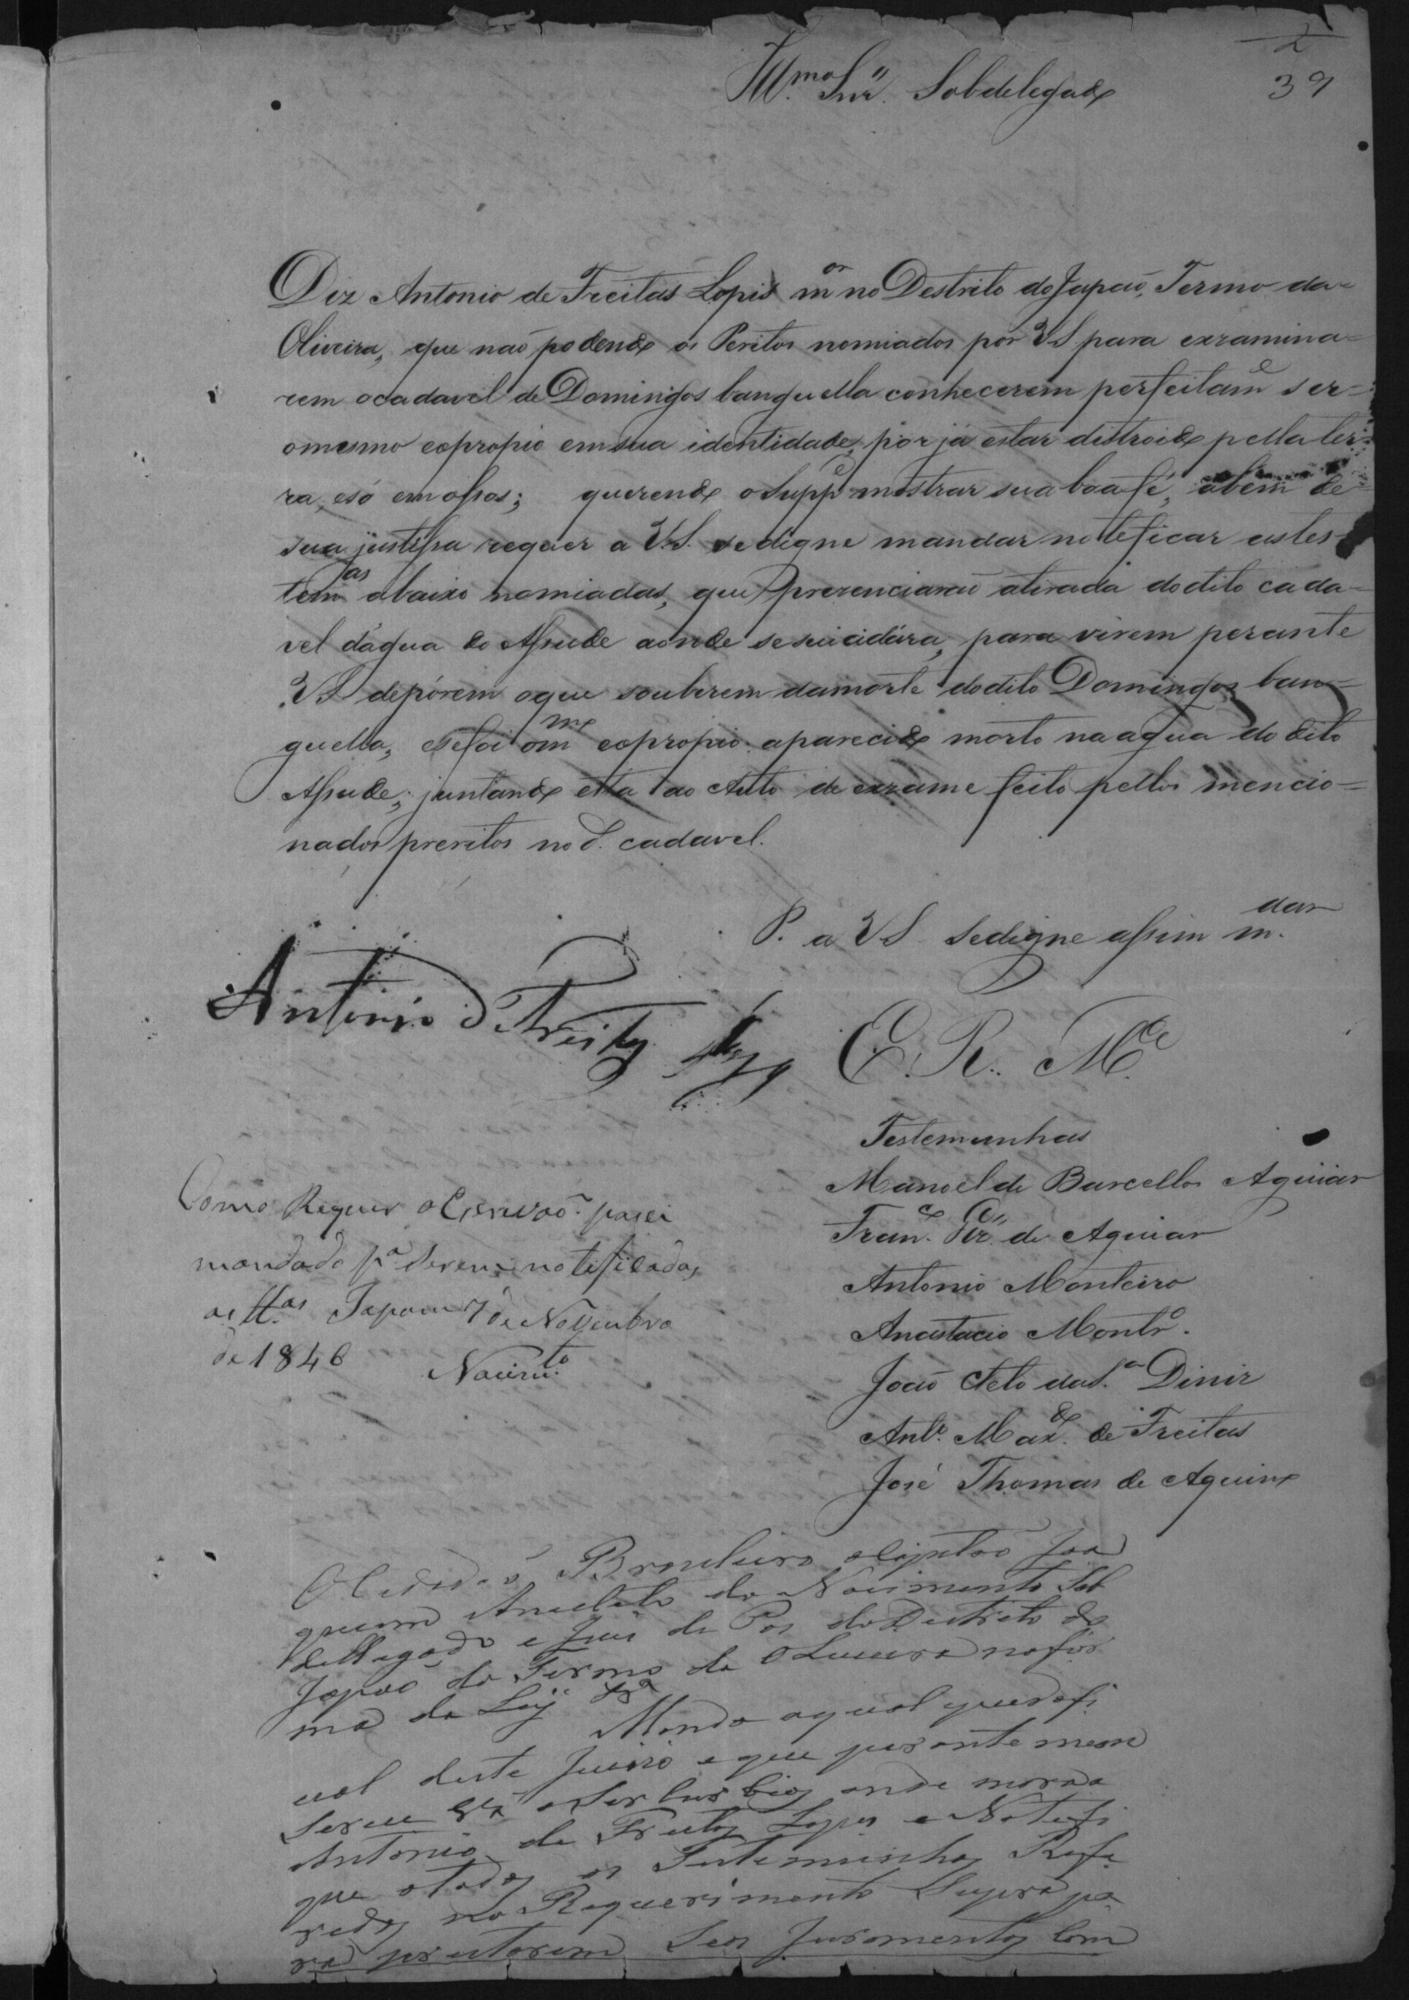 2
39
Ill.mo Snr. Sobdelegado
Diz Antonio de Freitas Lopes m.or no Destrito do Japaõ, Termo da
Oliveira, que naõ podendo os Peritos nomiados por V.S. para exzamina=
rem o cadavel de Domingos banguella conhecerem perfeitam.e ser=
o mesmo e o propio em sua identidade, por já estar distroido pella ter=
ra, e só em ossos; querendo o Supp.e mostrar sua boa fé, abem de
sua justissa requer a V.S. se digne mandar noteficar as tes=
tem.as abaixo nomiadas, que prezenciaraõ a tirada do dito cada=
vel d'agua do Assude aonde se suicidára, para virem perante
V.S. depórem o que souberem da morte do dito Domingos ban=
guella, e se foi o m.mo e o propio aparecido morto na agua do dito
Assude; juntando esta ao Auto de exzame feito pellos mencio=
nados preritos no d. cadavel.
P. a V.S. se digne assim m.dar
Antonio de Freitas Lopes
E. R. M.ce
Testemunhas
Manoel de Barcellos Aguiar
Fran.co Per.a de Aguiar
Antonio Monteiro
Anastacio Montr.o
Joaõ Cleto da S.a Diniz
Ant.o Max.do de Freitas
José Thomas de Aquino
Como Requer o Escrivaõ pasei
mandado p.a serem notificadas
as tt.as Japam 7 de Novembro
de 1846
Nacim.to
O Cidadaõ Brazileiro Capitaõ Joa
quim Anacleto do Nacimento Sub
dellegado e Juis de Pas do Destrito do
Japaõ do Termo da Oliveira na for
ma da Ley &.a
Mando a qual quer ofi
cial deste Juizo e que perante mim
Serve vá onde mora
Antonio de Freitas Lopes e Notefi
que a todas as Testemunhas Refe
redas no Requerimento Supra pa
ra prestarem seos Juramentos Com